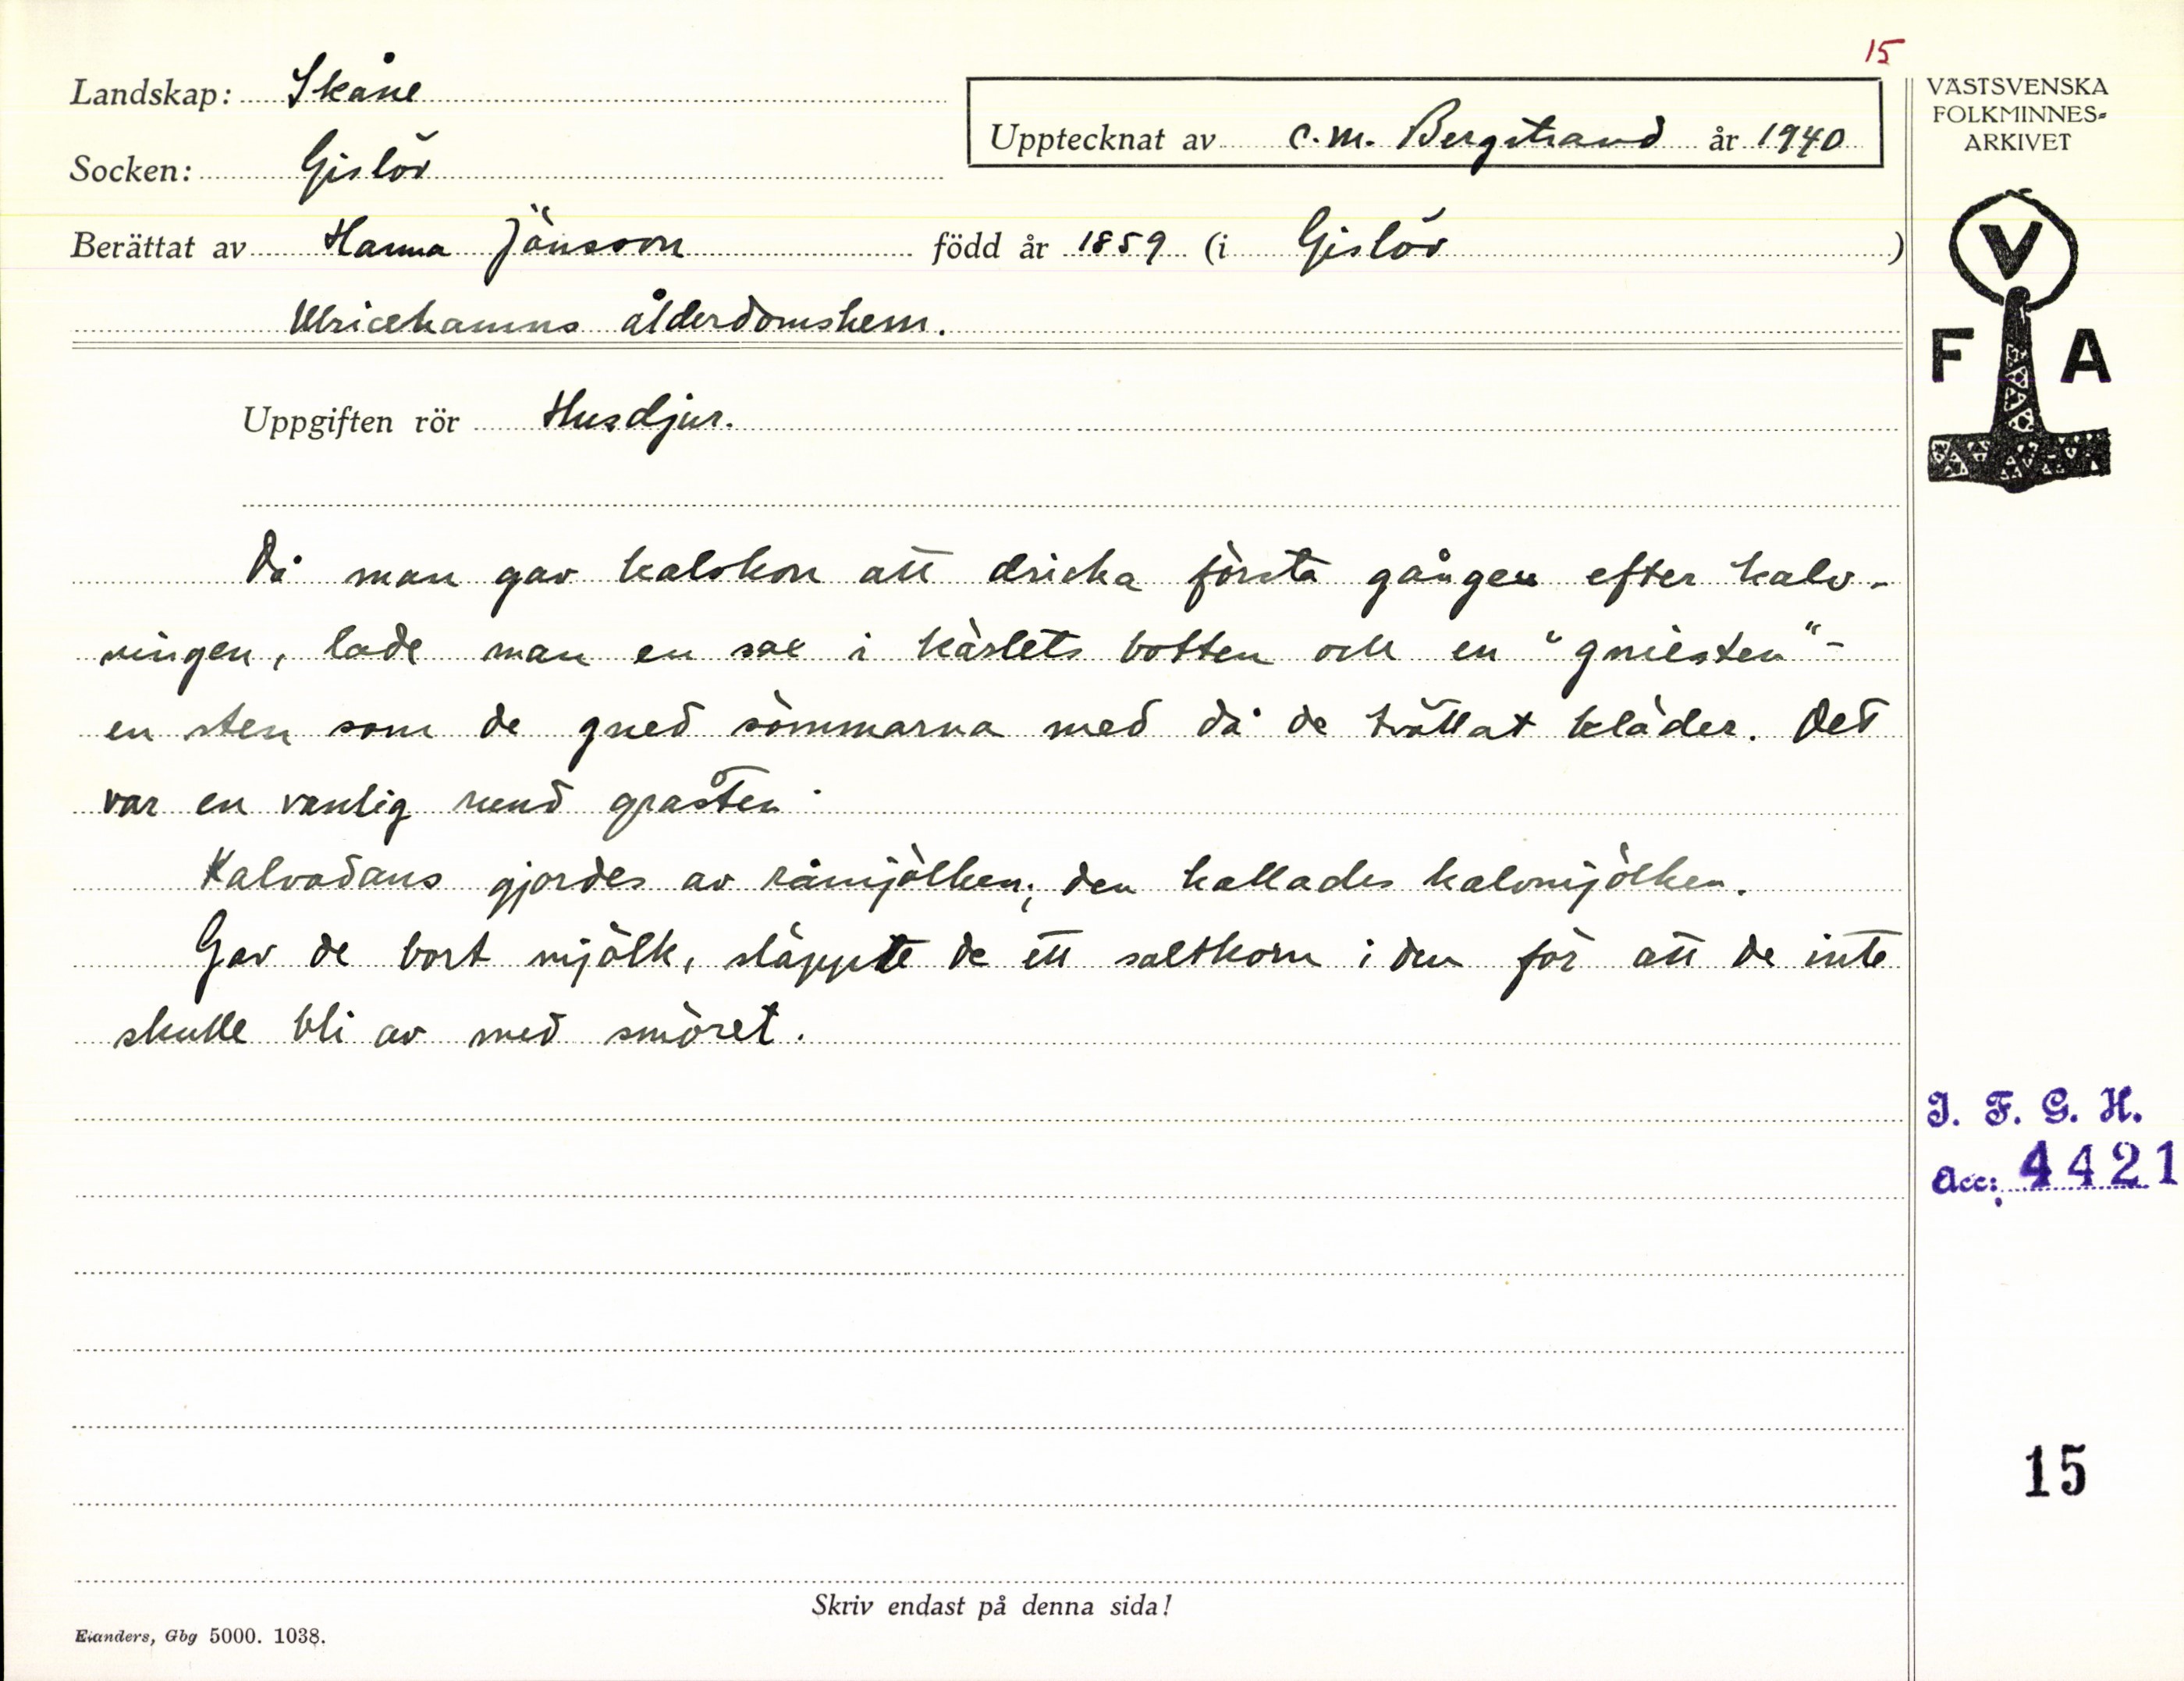 15
Landskap: Skåne
VÄSTSVENSKA
FOLKMINNES=
ARKIVET
Upptecknat av C.M. Bergstrand år 1940
Socken: Gislöv
Berättat av Hanna Jönsson född år 1859 (i Gislöv )
Ulricehamns ålderdomshem.
V
F A
Uppgiften rör Husdjur.
Då man gav kalvkon att dricka första gången efter kalv-
ningen, lade man en sax i kärlets botten och en "gniesten" -
en sten som de gned sömmarna med då de tvättat kläder. Det
var en vanlig rund gråsten.
Kalvadans gjordes av råmjölken; den kallades kalvmjölken.
Gav de bort mjölk, släppte de ett saltkorn i den för att de inte
skulle bli av med smöret.
I. F. G. H.
Acc: 4421
15
Skriv endast på denna sida!
Elanders, Gbg 5000. 1038.